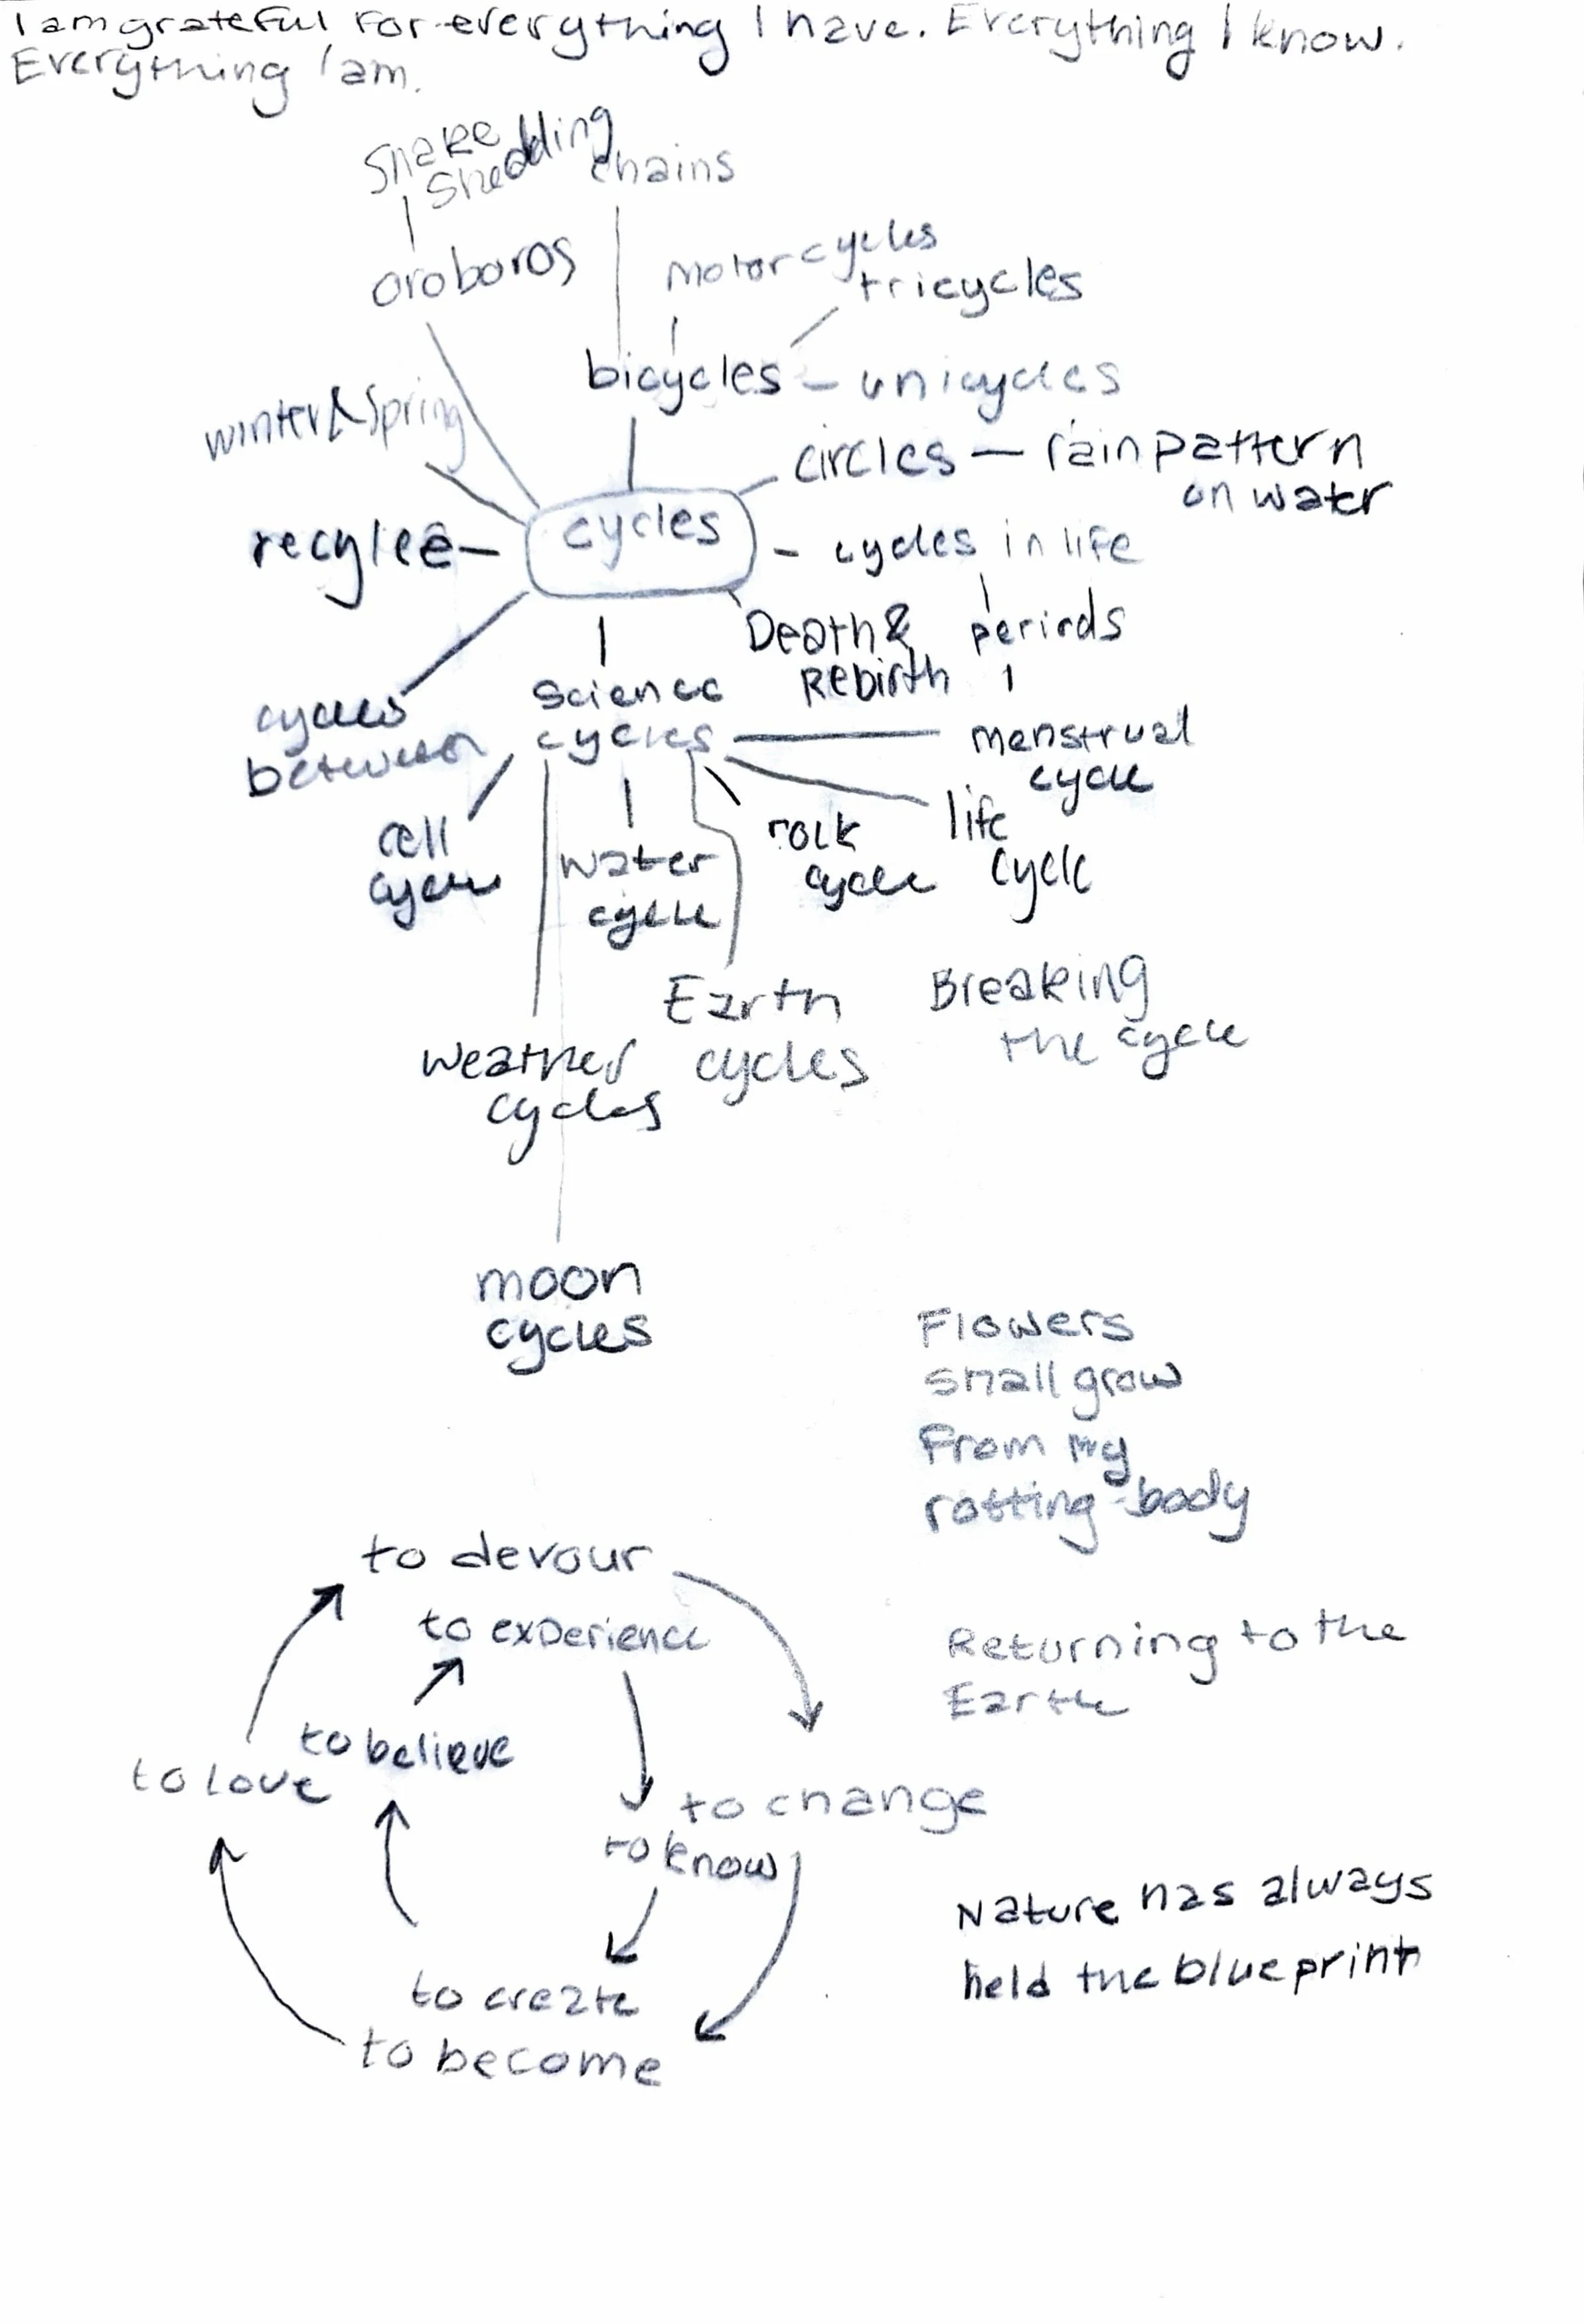 I am grateful for everything I have. Everything I know.
Everything I am.
Snake
Shedding
chains
oroboros
motorcycles
tricycles
bicycles - unicycles
winter & Spring
circles - rain pattern
on water
cycles
recylce -
- cycles in life
Death &
Rebirth
periods
science
cycles
cycles
between
menstrual
cycle
cell
cycle
water
cycle
rock
cycle
life
cycle
Earth
cycles
Breaking
the cycle
weather
cycles
moon
cycles
Flowers
small grow
from my
rotting body
to devour
to experience
Returning to the
Earth
to believe
to love
to change
to know
Nature has always
held the blueprint
to create
to become